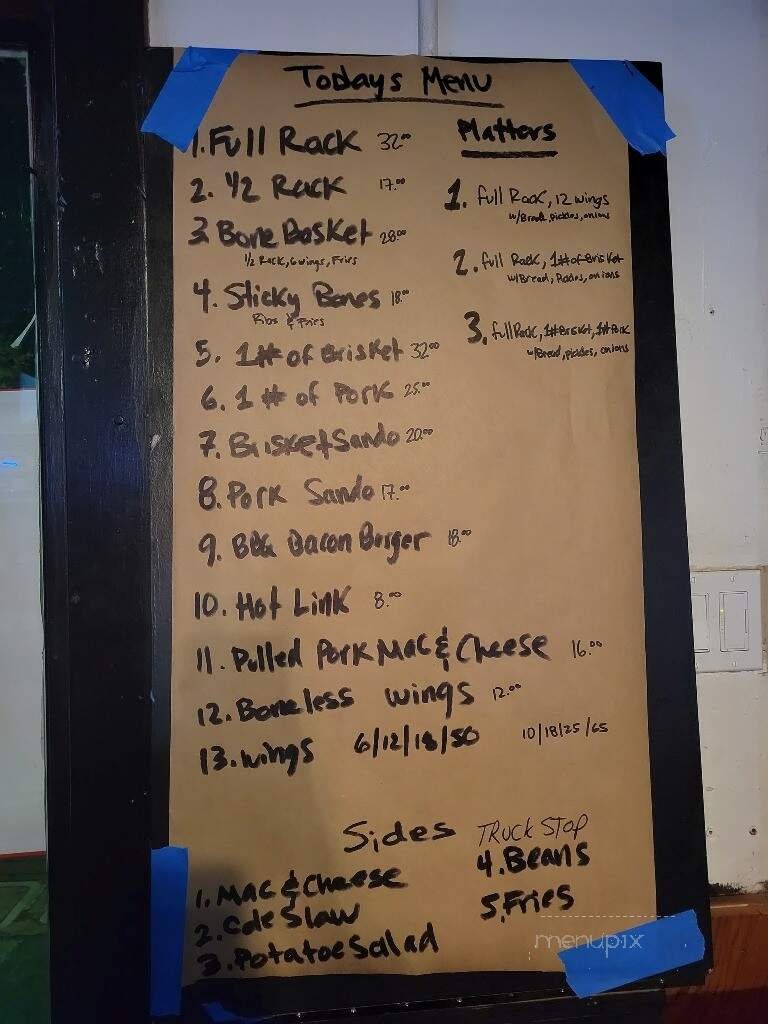 Todays Menu
1. Full Rack 32.00
2. 1/2 Rack 17.00
3. Bone Basket 28.00
1/2 Rack, 6 wings, Fries
4. Sticky Bones 18.00
Ribs & Fries
5. 1# of Brisket 32.00
6. 1 # of Pork 25.00
7. Brisket Sando 20.00
8. Pork Sando 17.00
9. BBQ Bacon Burger 18.00
10. Hot Link 8.00
11. Pulled Pork Mac & Cheese 16.00
12. Boneless wings 12.00
13. wings 6/12/18/50 10/18/25/65
Platters
1. Full Rack, 12 wings
w/Bread, pickles, onions
2. Full Rack, 1# of Brisket
w/Bread, Pickles, onions
3. Full Rack, 1# Brisket, 1# Pork
w/Bread, pickles, onions
Sides TRUCK STOP
1. Mac & Cheese
2. Cole Slaw
3. Potatoe Salad
4. Beans
5. Fries
menupix